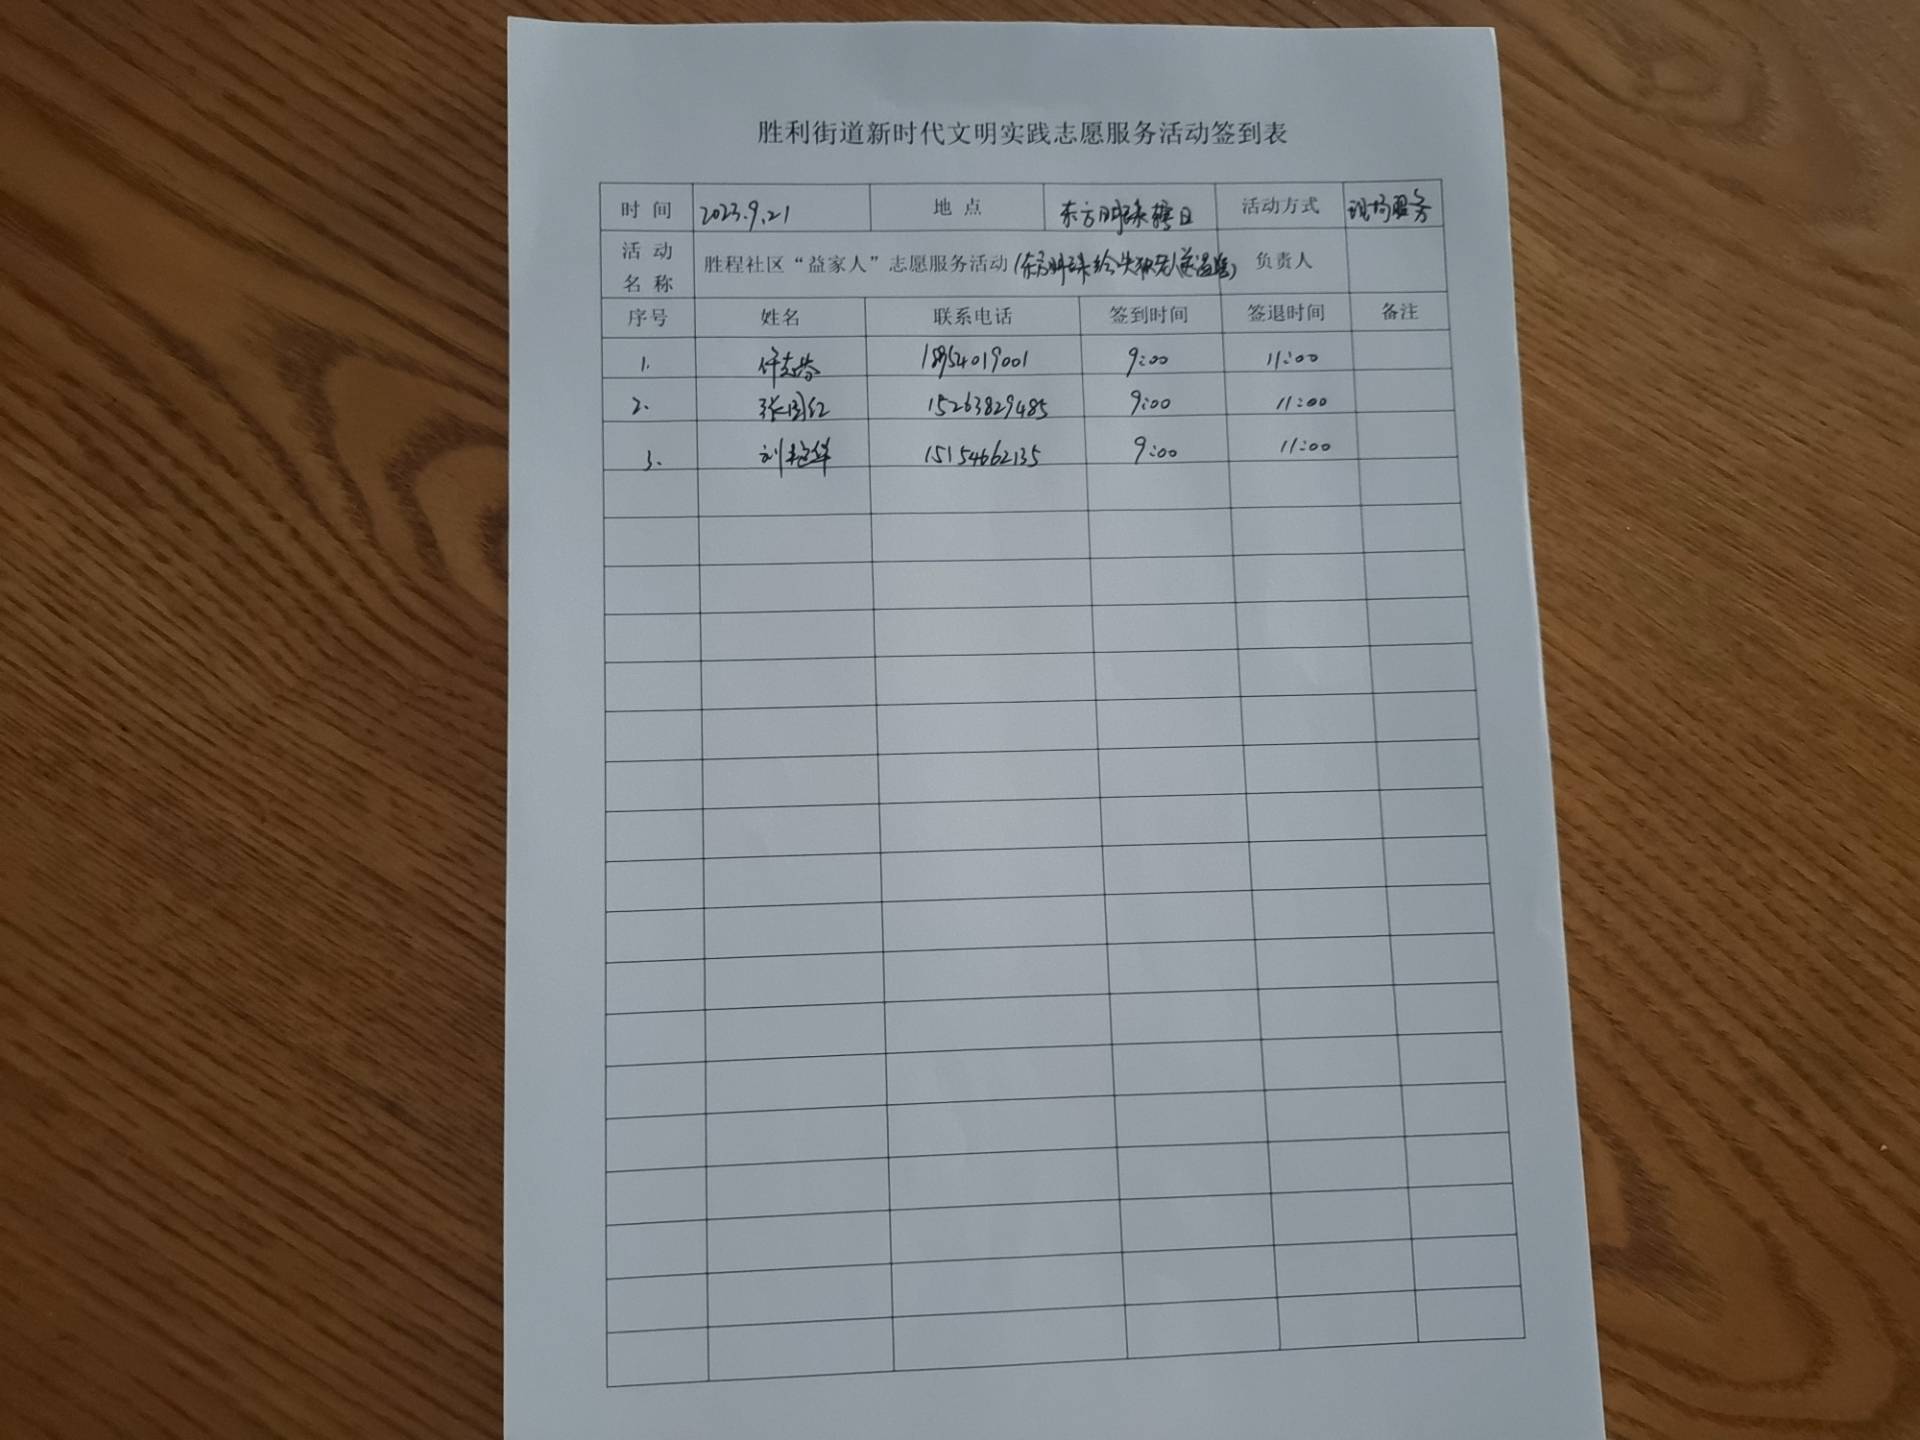 胜利街道新时代文明实践志愿服务活动签到表
时间 2023.9.21 地点 东方明珠辖区 活动方式 现场服务
活动名称 胜程社区“益家人”志愿服务活动(东方明珠给失独老人送温暖) 负责人
序号 姓名 联系电话 签到时间 签退时间 备注
1. 18954019001 9:00 11:00
2. 张国红 15263829485 9:00 11:00
3. 刘艳华 15154662135 9:00 11:00